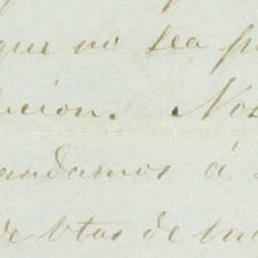 que no sea
cion. Nos
andamos á
de btas de